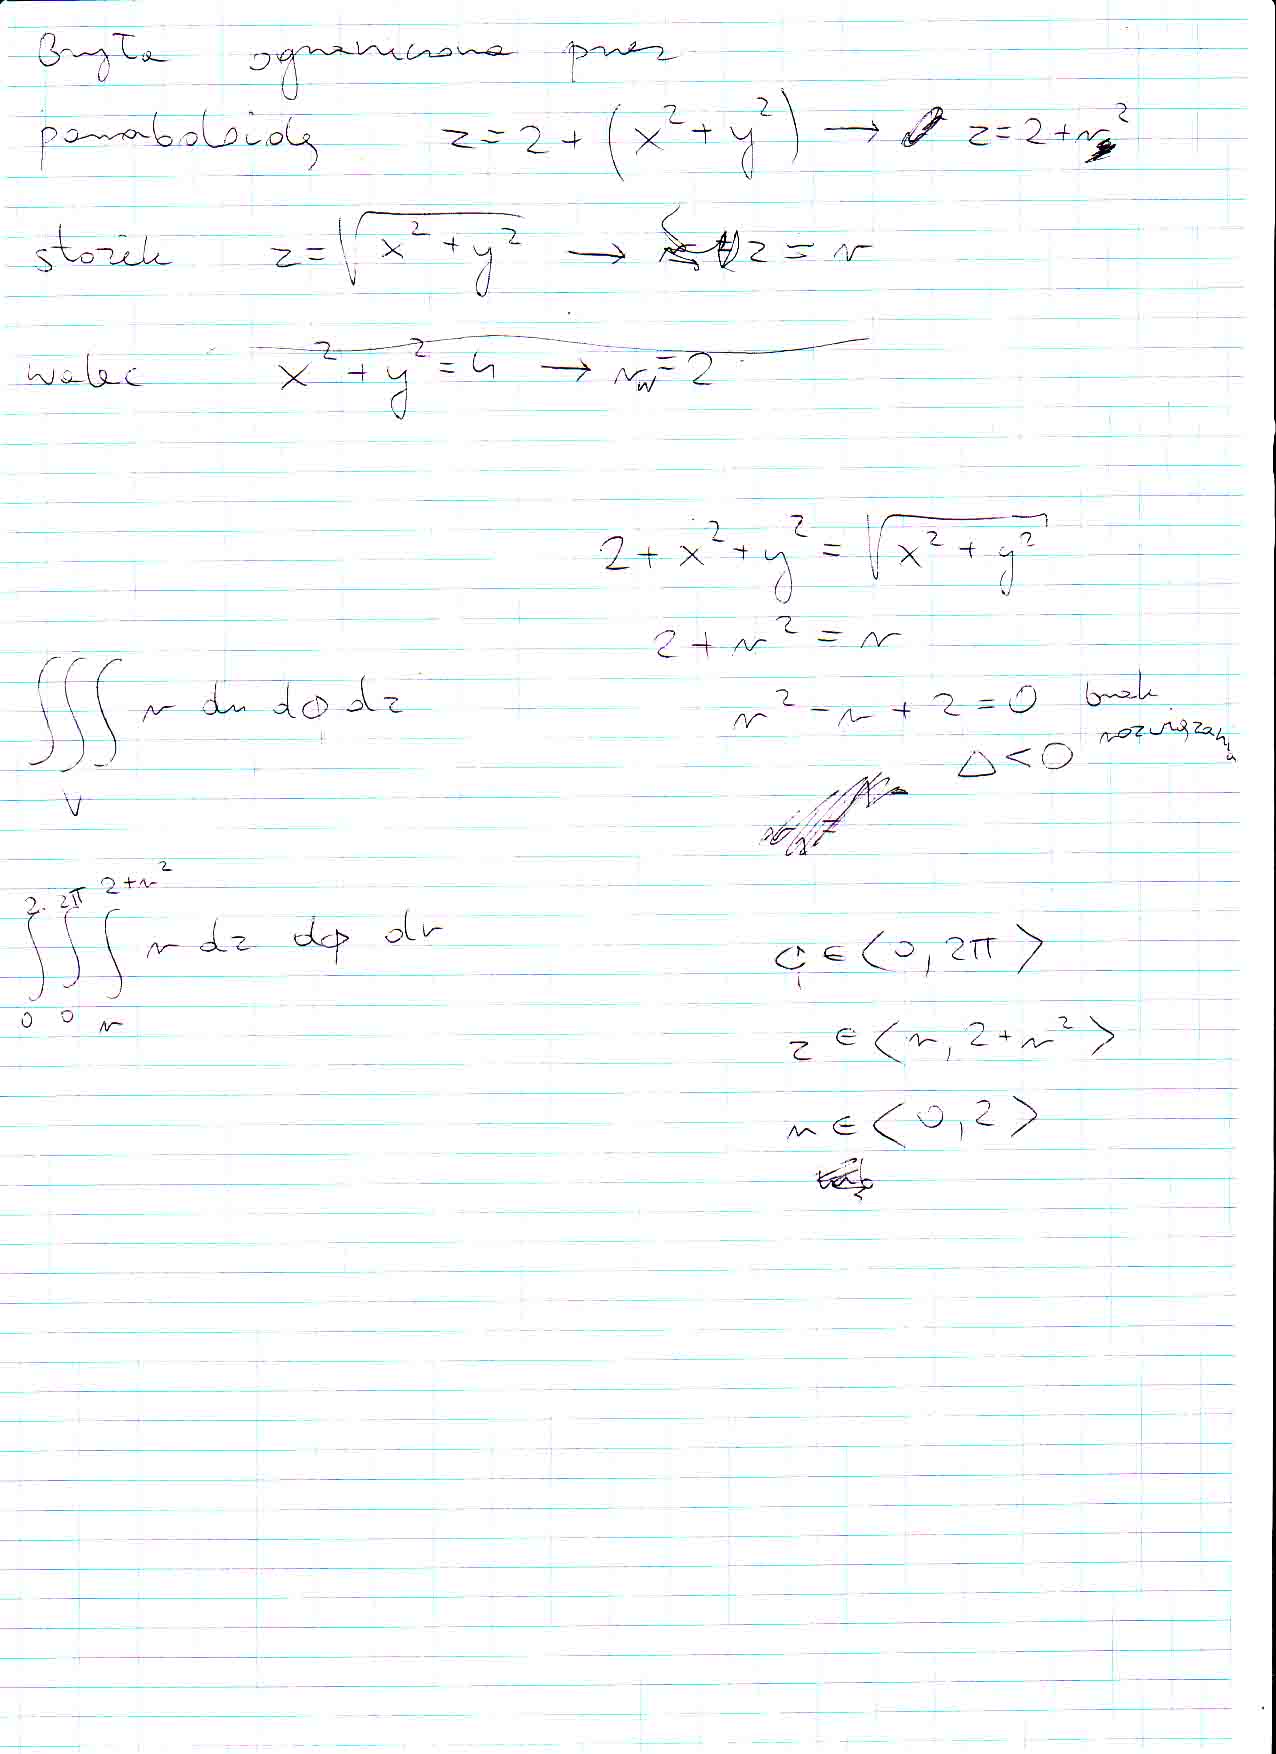 Bryła ograniczona przez
paraboloidę z = 2 + (x² + y²) → z = 2 + r²
stożek z = √(x² + y²) → z = r
walec x² + y² = 4 → r_w = 2
2 + x² + y² = √(x² + y²)
2 + r² = r
r² - r + 2 = 0 brak rozwiązania
Δ < 0
∭ r dr dφ dz
V
2 2π 2+r²
∫ ∫ ∫ r dz dφ dr
0 0 r
φ ∈ ⟨0, 2π⟩
z ∈ ⟨r, 2 + r²⟩
r ∈ ⟨0, 2⟩